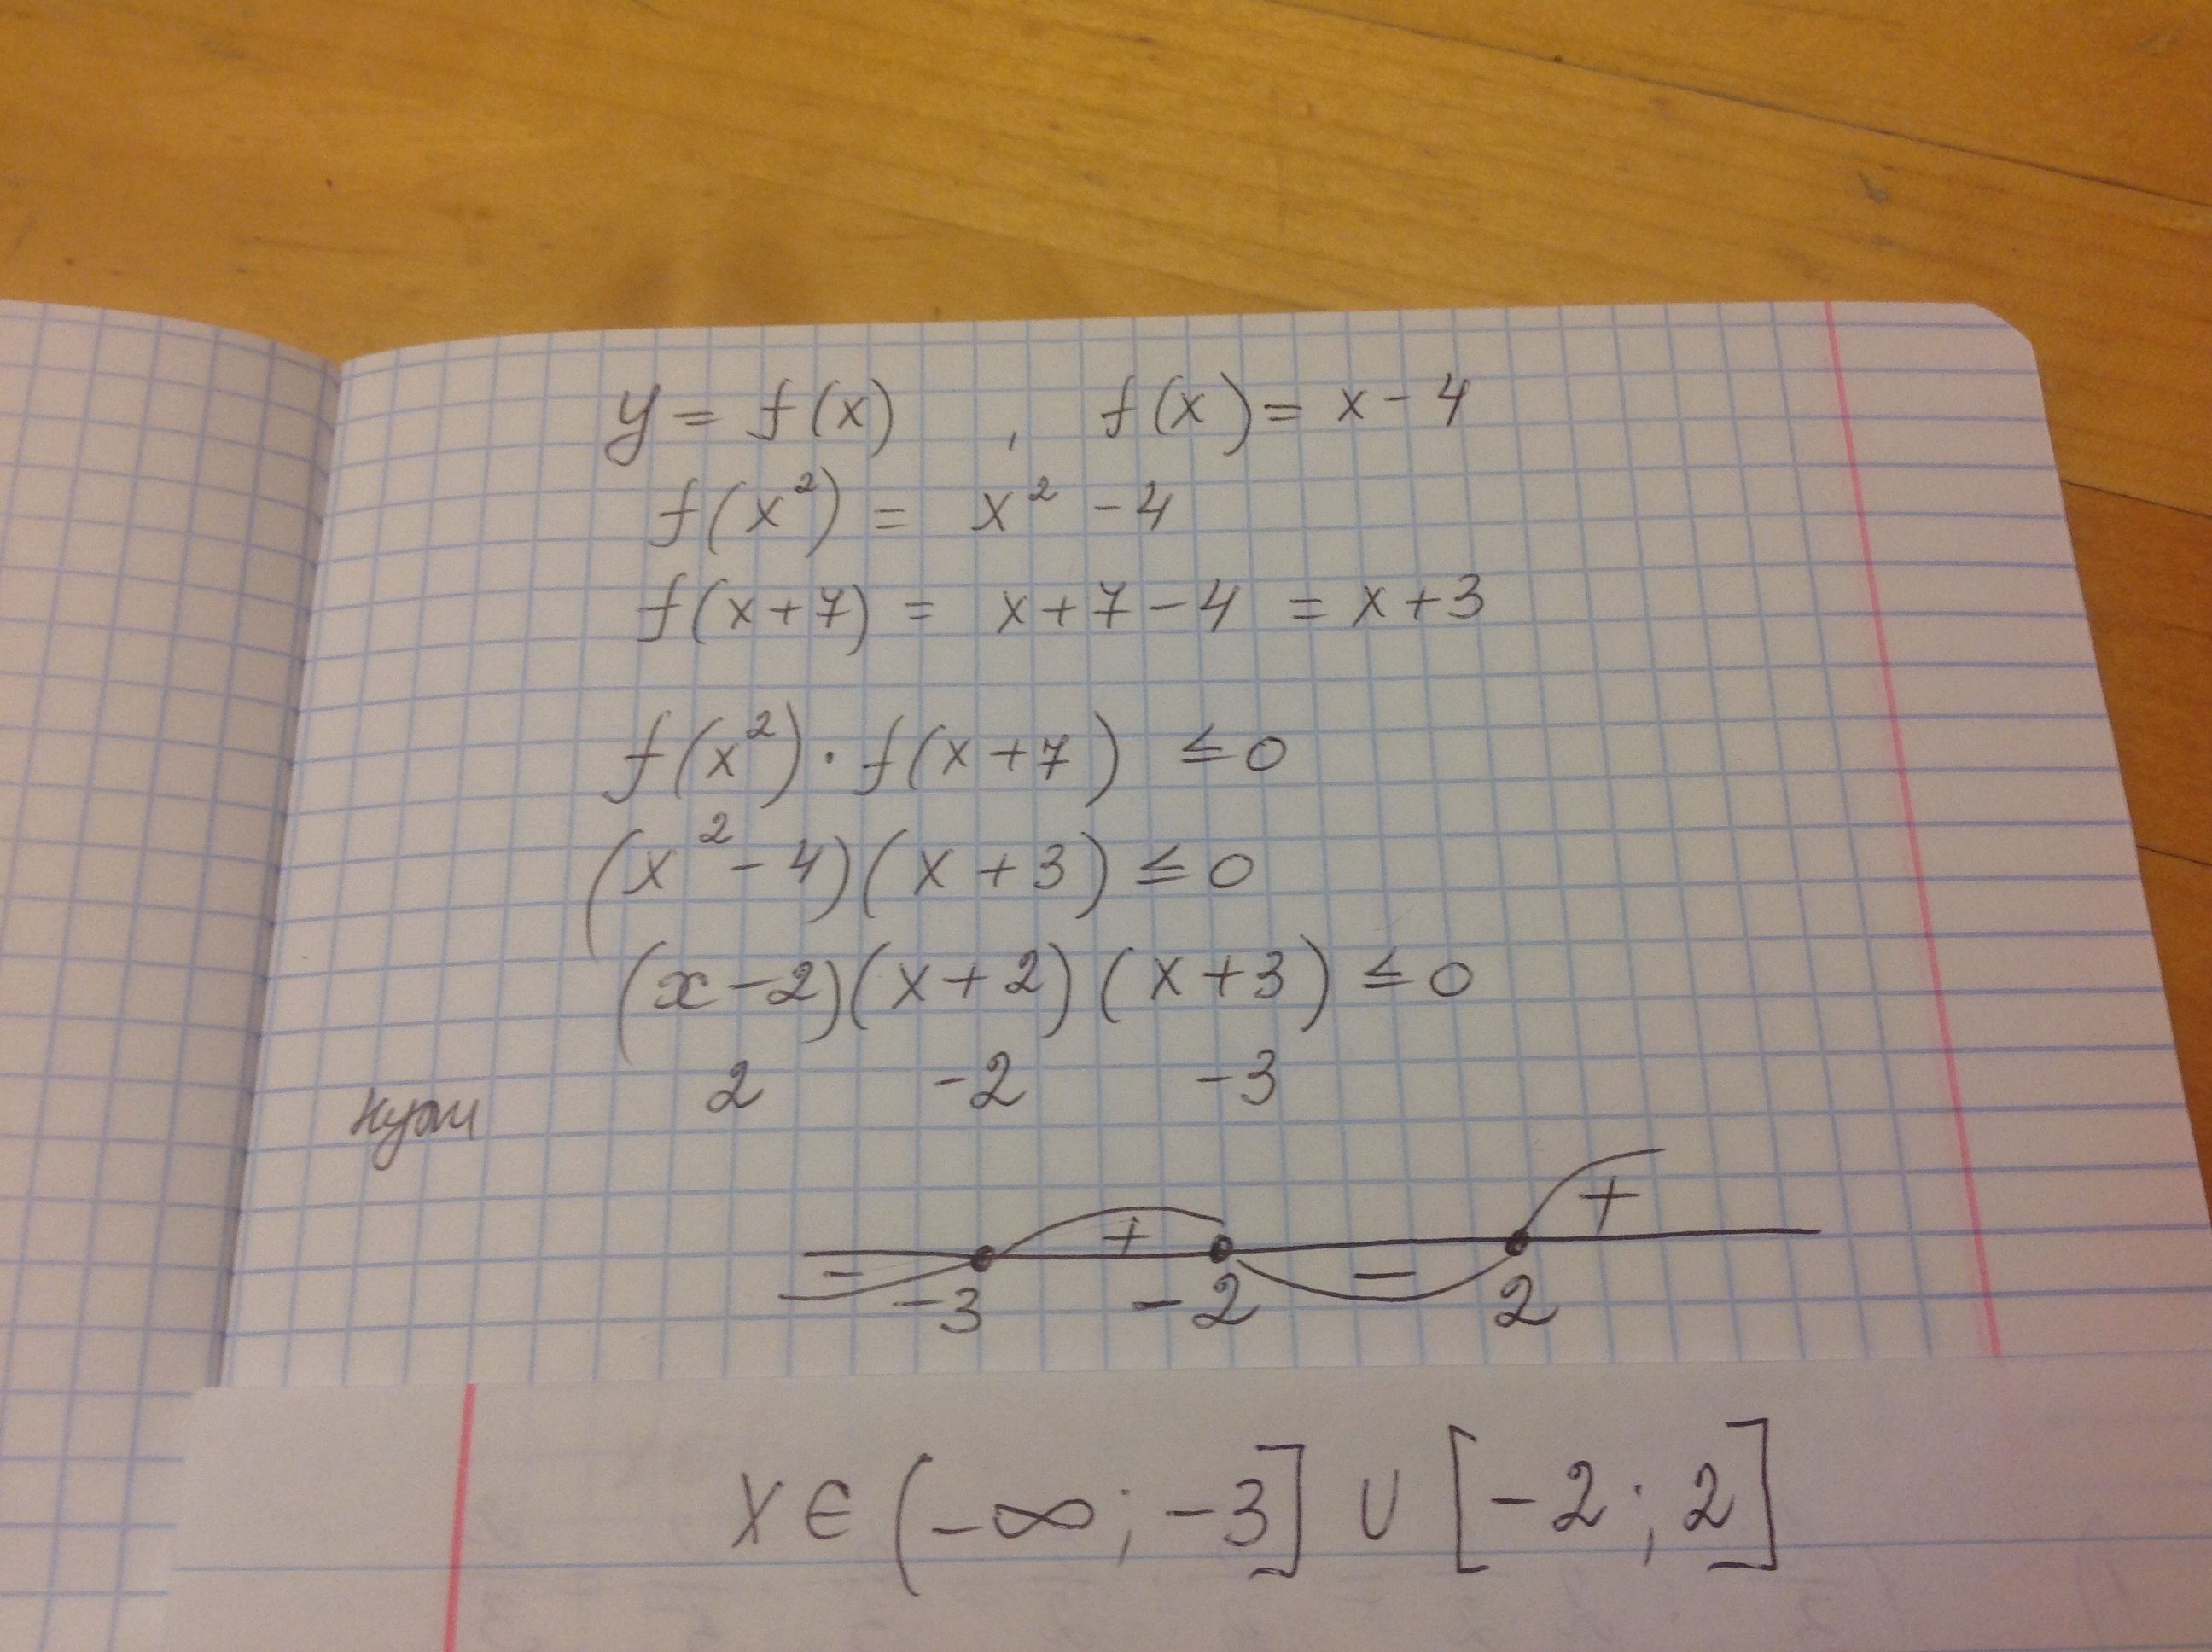 y = f(x) , f(x) = x - 4
f(x²) = x² - 4
f(x+7) = x+7-4 = x+3
f(x²) · f(x+7) ≤ 0
(x² - 4)(x + 3) ≤ 0
(x-2)(x+2)(x+3) ≤ 0
2 -2 -3
нули
- + - +
-3 -2 2
x ∈ (-∞; -3] ∪ [-2; 2]